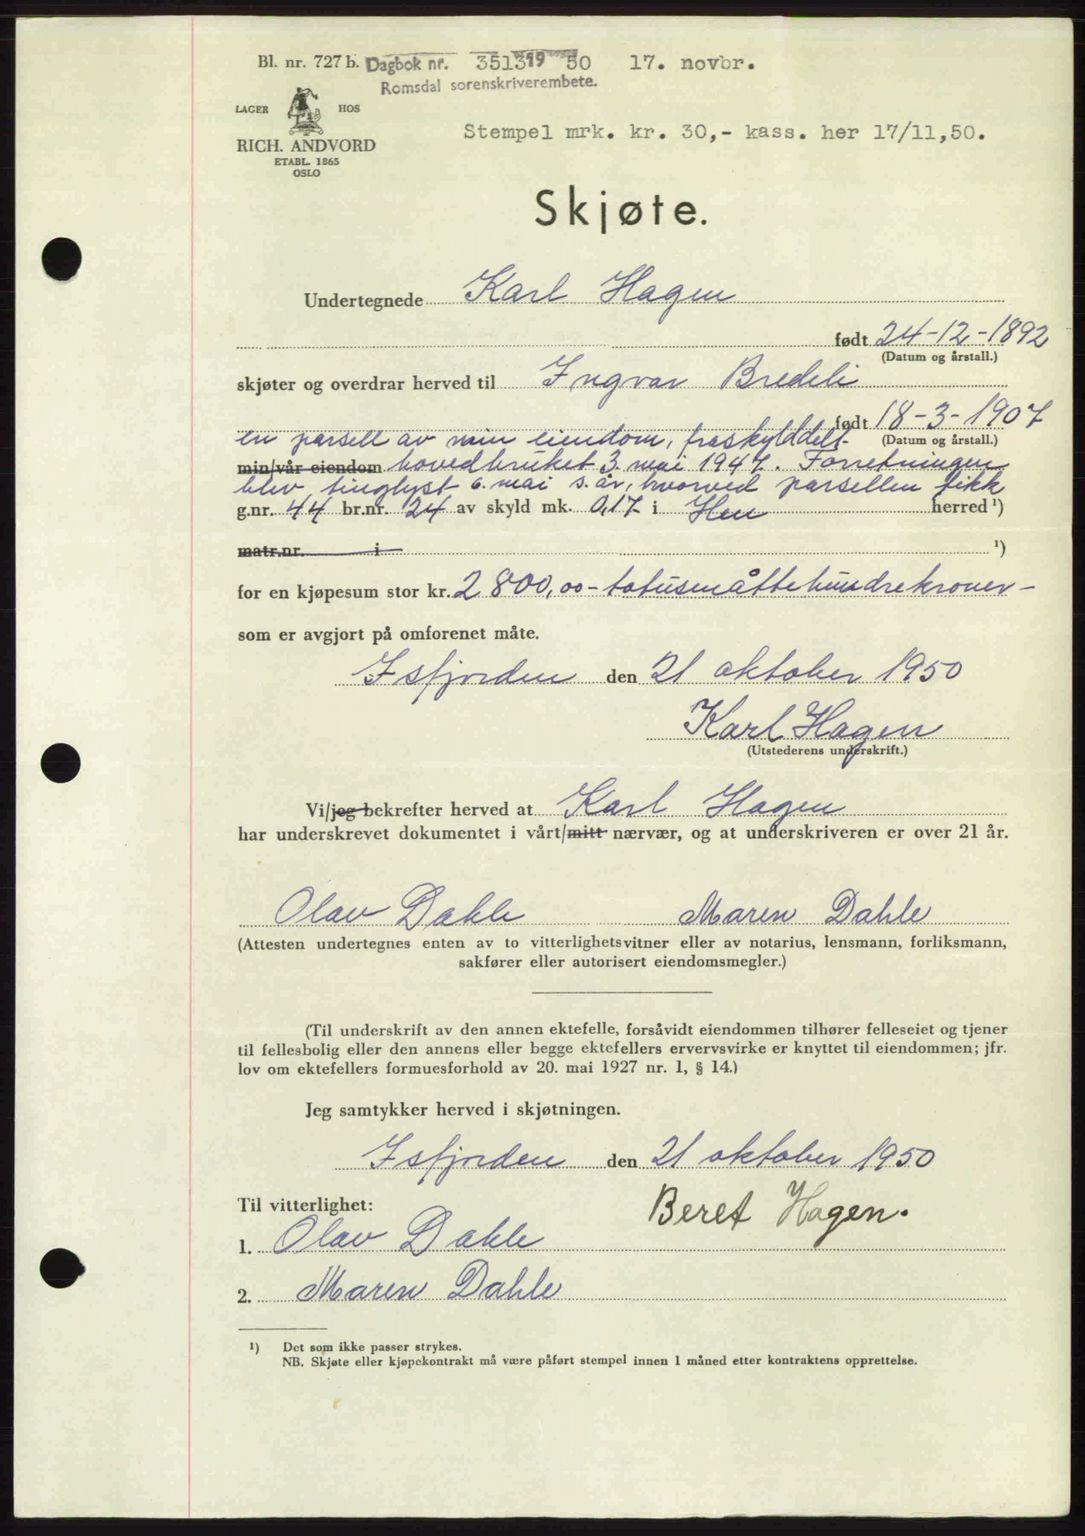 Bl. nr. 727 b. Dagbok nr. 3513 19 50 17. novbr.
Romsdal sorenskriverembete.
LAGER HOS
Stempel mrk. kr. 30,- kass. her 17/11,50.
RICH. ANDVORD
ETABL. 1865
OSLO
Skjøte.
Undertegnede Karl Hagen
født 24-12-1892
(Datum og årstall.)
skjøter og overdrar herved til Ingvar Bredeli
født 18-3-1907
(Datum og årstall.)
en parsell av min eiendom, fraskylddelt
min/vår eiendom hovedbruket 3. mai 1947. Forretningen
blev tinglyst 6. mai s. år, hvorved parsellen fikk
g.nr. 44 br.nr. 24 av skyld mk. 0,17 i Hen herred ¹)
matr.nr. i ¹)
for en kjøpesum stor kr. 2800,00 - totusenåttehundrekroner -
som er avgjort på omforenet måte.
Isfjorden den 21 oktober 1950
Karl Hagen
(Utstederens underskrift.)
Vi/jeg bekrefter herved at Karl Hagen
har underskrevet dokumentet i vårt/mitt nærvær, og at underskriveren er over 21 år.
Olav Dahle Maren Dahle
(Attesten undertegnes enten av to vitterlighetsvitner eller av notarius, lensmann, forliksmann,
sakfører eller autorisert eiendomsmegler.)
(Til underskrift av den annen ektefelle, forsåvidt eiendommen tilhører felleseiet og tjener
til fellesbolig eller den annens eller begge ektefellers ervervsvirke er knyttet til eiendommen; jfr.
lov om ektefellers formuesforhold av 20. mai 1927 nr. 1, § 14.)
Jeg samtykker herved i skjøtningen.
Isfjorden den 21 oktober 1950
Til vitterlighet: Beret Hagen.
1. Olav Dahle
2. Maren Dahle
¹) Det som ikke passer strykes.
NB. Skjøte eller kjøpekontrakt må være påført stempel innen 1 måned etter kontraktens opprettelse.